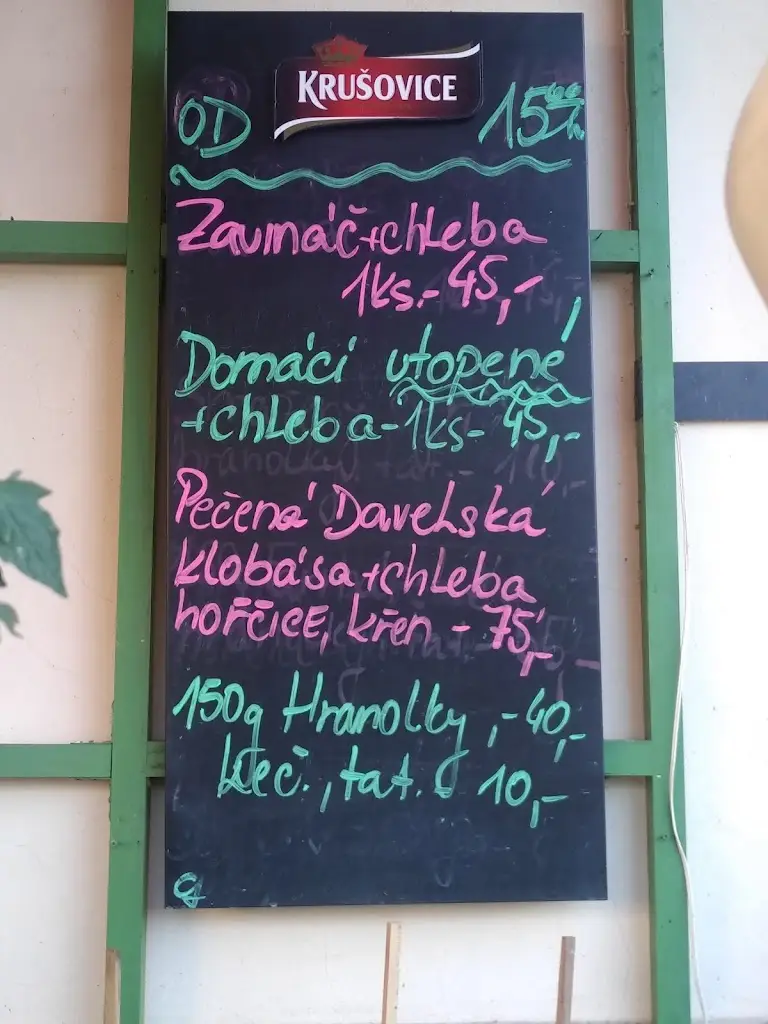 KRUŠOVICE
OD 15⁰⁰h.
Zavináč+chleba
1ks.- 45,-
Domácí utopené
+chleba-1ks- 45,-
Pečená Davelská
klobása+chleba
hořčice, křen - 75,-
150g Hranolky ,- 40,-
keč., tat. 10,-